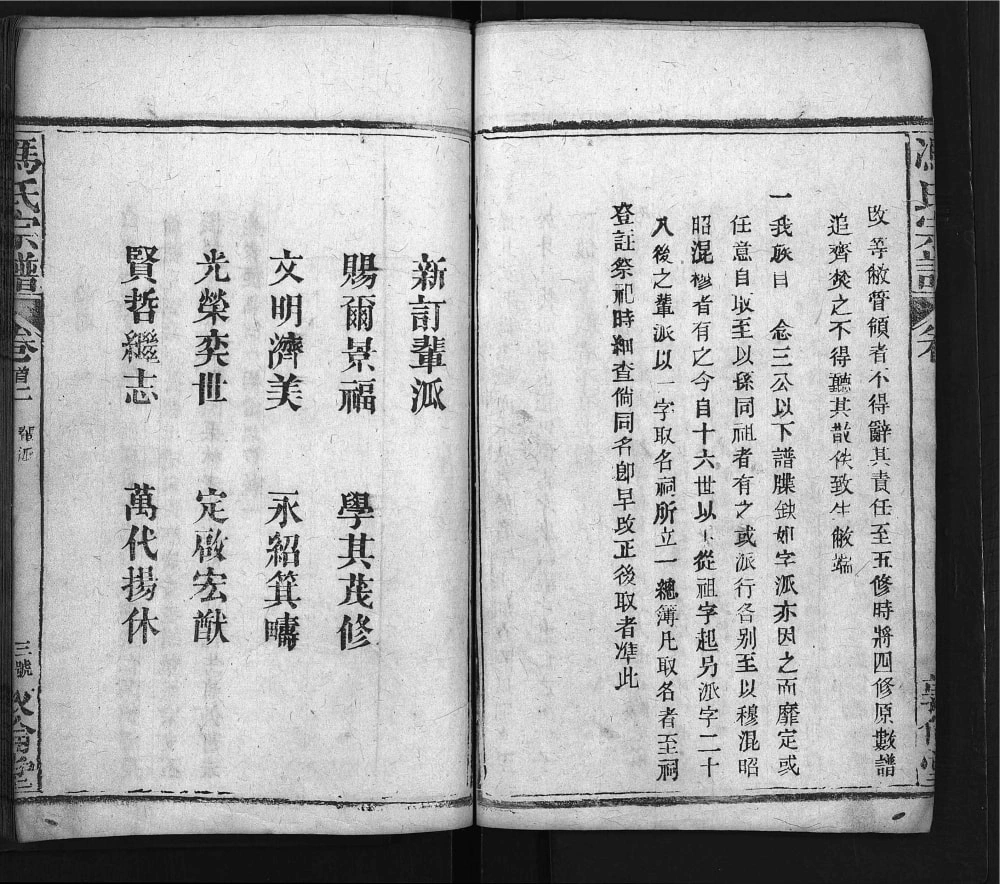 攺等敝管領者不得辭其責任至五修時將四修原數譜
追齊焚之不得聽其散佚致生敝端
一我族自　念三公以下譜牒缺如字派亦因之而靡定或
任意自取至以孫同祖者有之或派行各别至以穆混昭
昭混穆者有之今自十六世以下從祖字起另派字二十
八後之輩派以一字取名祠所立一總簿凡取名者至祠
登註祭祀時細查倘同名卽早攺正後取者准此
馮氏宗譜
卷首二
三號
新訂輩派
賜爾景福　學其茂修
文明濟美　永紹箕疇
光榮奕世　定啟宏猷
賢哲繼志　萬代揚休
馮氏宗譜